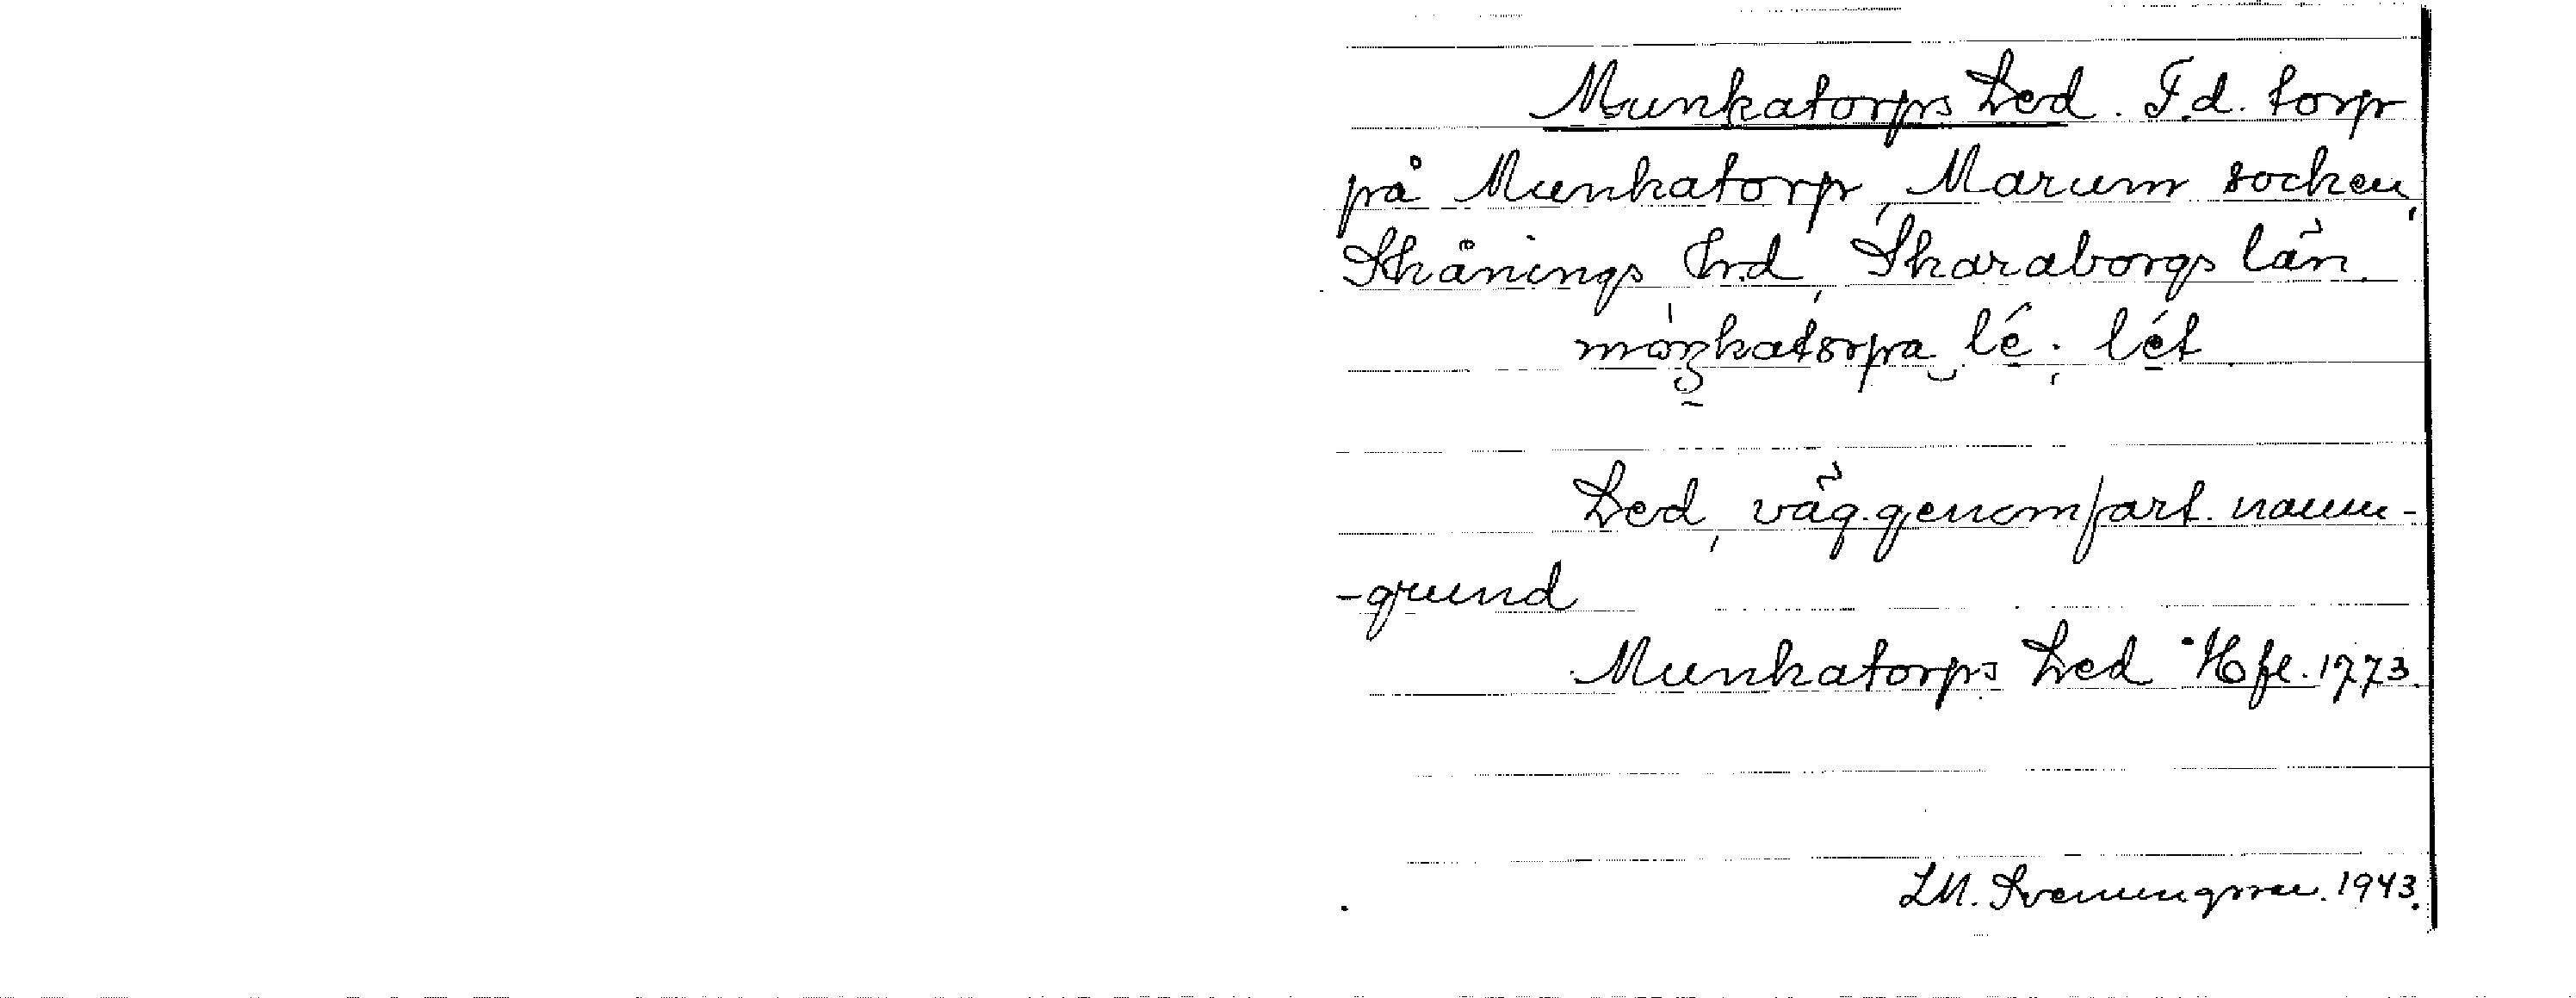 Munkatorps Led. F.d. torp
på Munkatorp, Marum socken,
Skånings hd, Skaraborgs län.
Led, väg-genomfart. namn-
-grund
Munkatorps Led Hfl. 1773.
LM. Svenungsson. 1943.